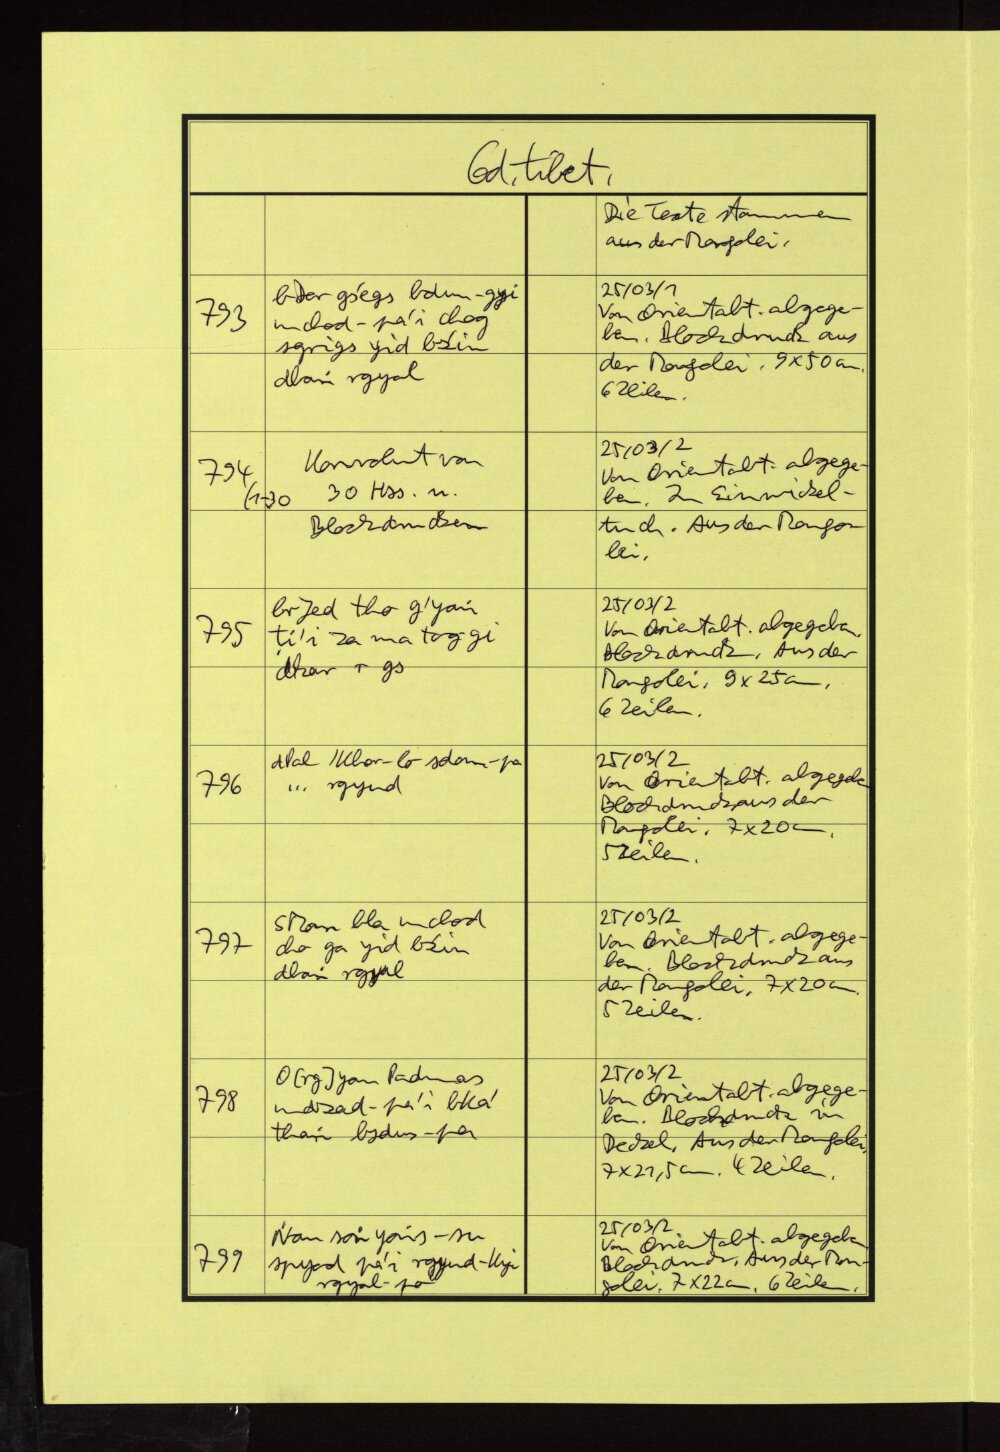 Cod. tibet.
Die Texte stammen
aus der Mongolei.
793
bDer gśegs bdun-gyi
mchod-pa'i chog
sgrigs yid bźin
dbaṅ rgyal
25/03/1
Von Orientabt. abgege-
ben. Blockdruck aus
der Mongolei. 9x50cm.
6 Zeilen.
794
(1-30
Konvolut von
30 Hss. u.
Blockdrucken
25/03/2
Von Orientabt. abgege-
ben. In Einwickel-
tuch. Aus der Mongo-
lei.
795
brJed tho g'yaṅ
ti'i za ma tog gi
dkar gs
25/03/2
Von Orientabt. abgegeben.
Blockdruck. Aus der
Mongolei. 9x25cm.
6 Zeilen.
796
dPal 'Khor-lo sdom-pa
... rgyud
25/03/2
Von Orientabt. abgegeben
Blockdruck aus der
Mongolei. 7x20cm.
5 Zeilen.
797
sMan bla mchod
cho ga yid bźin
dbaṅ rgyal
25/03/2
Von Orientabt. abgege-
ben. Blockdruck aus
der Mongolei. 7x20cm.
5 Zeilen.
798
O[rg]yan Padmas
mdzad-pa'i bKa'
thaṅ bsdus-pa
25/03/2
Von Orientabt. abgege-
ben. Blockdruck in
Deckel. Aus der Mongolei.
7x21,5cm. 4 Zeilen.
799
Ṅan soṅ yoṅs-su
spyod pa'i rgyud-kyi
rgyal-po
25/03/2
Von Orientabt. abgegeben
Blockdruck. Aus der Mon-
golei. 7x22cm. 6 Zeilen.